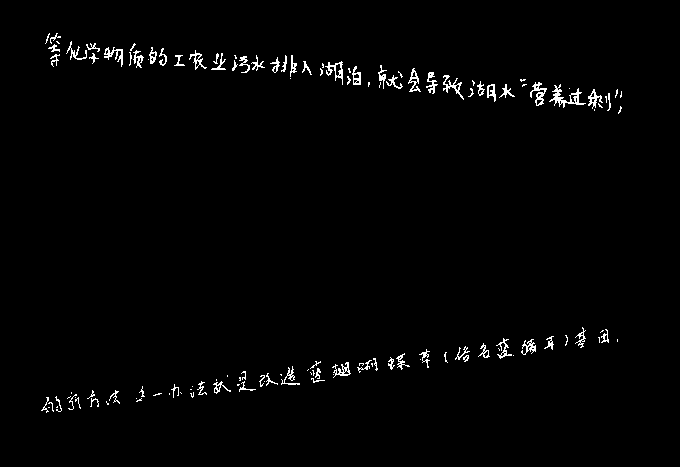 等化学物质的工农业污水排入湖泊，就会导致湖水“营养过剩”，
的新方法之一办法就是改造蓝翅蝴蝶草（俗名蓝猪耳）基因，